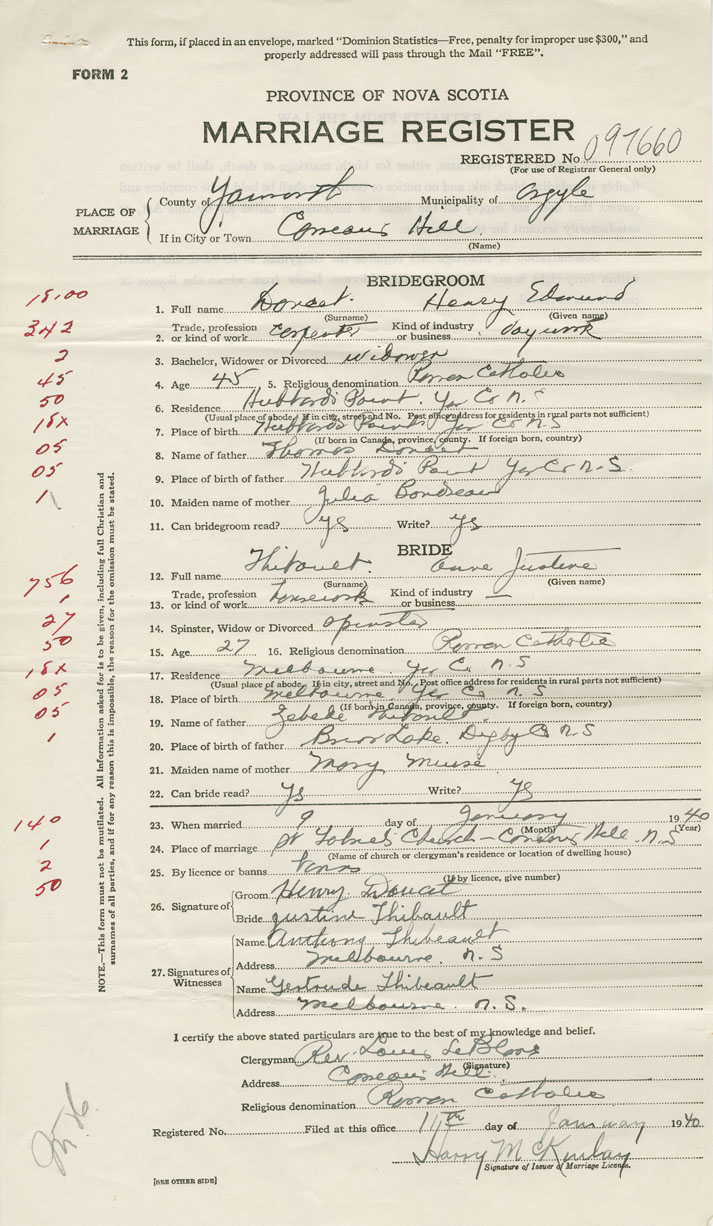 This form, if placed in an envelope, marked "Dominion Statistics—Free, penalty for improper use $300," and
properly addressed will pass through the Mail "FREE".
FORM 2
PROVINCE OF NOVA SCOTIA
MARRIAGE REGISTER
REGISTERED No. 097660
(For use of Registrar General only)
PLACE OF MARRIAGE
County of Yarmouth Municipality of Argyle
If in City or Town Comeaus Hill
(Name)
BRIDEGROOM
15.00
1. Full name Doucet. Henry Edmund
(Surname) (Given name)
342
2. Trade, profession or kind of work Carpenter Kind of industry or business day work
2
3. Bachelor, Widower or Divorced Widower
45
4. Age 45 5. Religious denomination Roman Catholic
50
6. Residence Hubbards Point. Yar Co N.S
(Usual place of abode. If in city, street and No. Post office address for residents in rural parts not sufficient)
18x
7. Place of birth Hubbards Point Yar Co N.S
(If born in Canada, province/county. If foreign born, country)
05
8. Name of father Thomas Doucet
05
9. Place of birth of father Hubbards Point Yar Co N.S.
1
10. Maiden name of mother Julia
11. Can bridegroom read? Ys Write? Ys
BRIDE
756
12. Full name Thibault. Anne Justine
(Surname) (Given name)
1
13. Trade, profession or kind of work housework Kind of industry or business —
27
14. Spinster, Widow or Divorced Spinster
50
15. Age 27 16. Religious denomination Roman Catholic
18x
17. Residence Melbourne Yar Co. N.S
(Usual place of abode. If in city, street and No. Post office address for residents in rural parts not sufficient)
05
18. Place of birth Melbourne. Yar Co N.S
(If born in Canada, province, county. If foreign born, country)
05
19. Name of father Zebede Thibault
1
20. Place of birth of father Briar Lake. Digby Co N.S
21. Maiden name of mother Mary Muise
22. Can bride read? Ys Write? Ys
140
23. When married 9 day of January 1940
(Month) (Year)
1
24. Place of marriage Church - Comeaus Hill N.S
(Name of church or clergyman's residence or location of dwelling house)
2
25. By licence or banns banns
(If by licence, give number)
50
26. Signature of
Groom Henry Doucet
Bride Justine Thibault
27. Signatures of Witnesses
Name Anthony Thibeault
Address Melbourne. N.S
Name Gertrude Thibeault
Address Melbourne. N.S.
NOTE.—This form must not be mutilated. All information asked for is to be given, including full Christian and
surnames of all parties, and if for any reason this is impossible, the reason for the omission must be stated.
I certify the above stated particulars are true to the best of my knowledge and belief.
Clergyman Rev. Louis LeBlanc
(Signature)
Address Comeaus Hill.
Religious denomination Roman Catholic
Registered No. Filed at this office 11th day of January 1940
Harry McKinlay
Signature of Issuer of Marriage License.
[SEE OTHER SIDE]